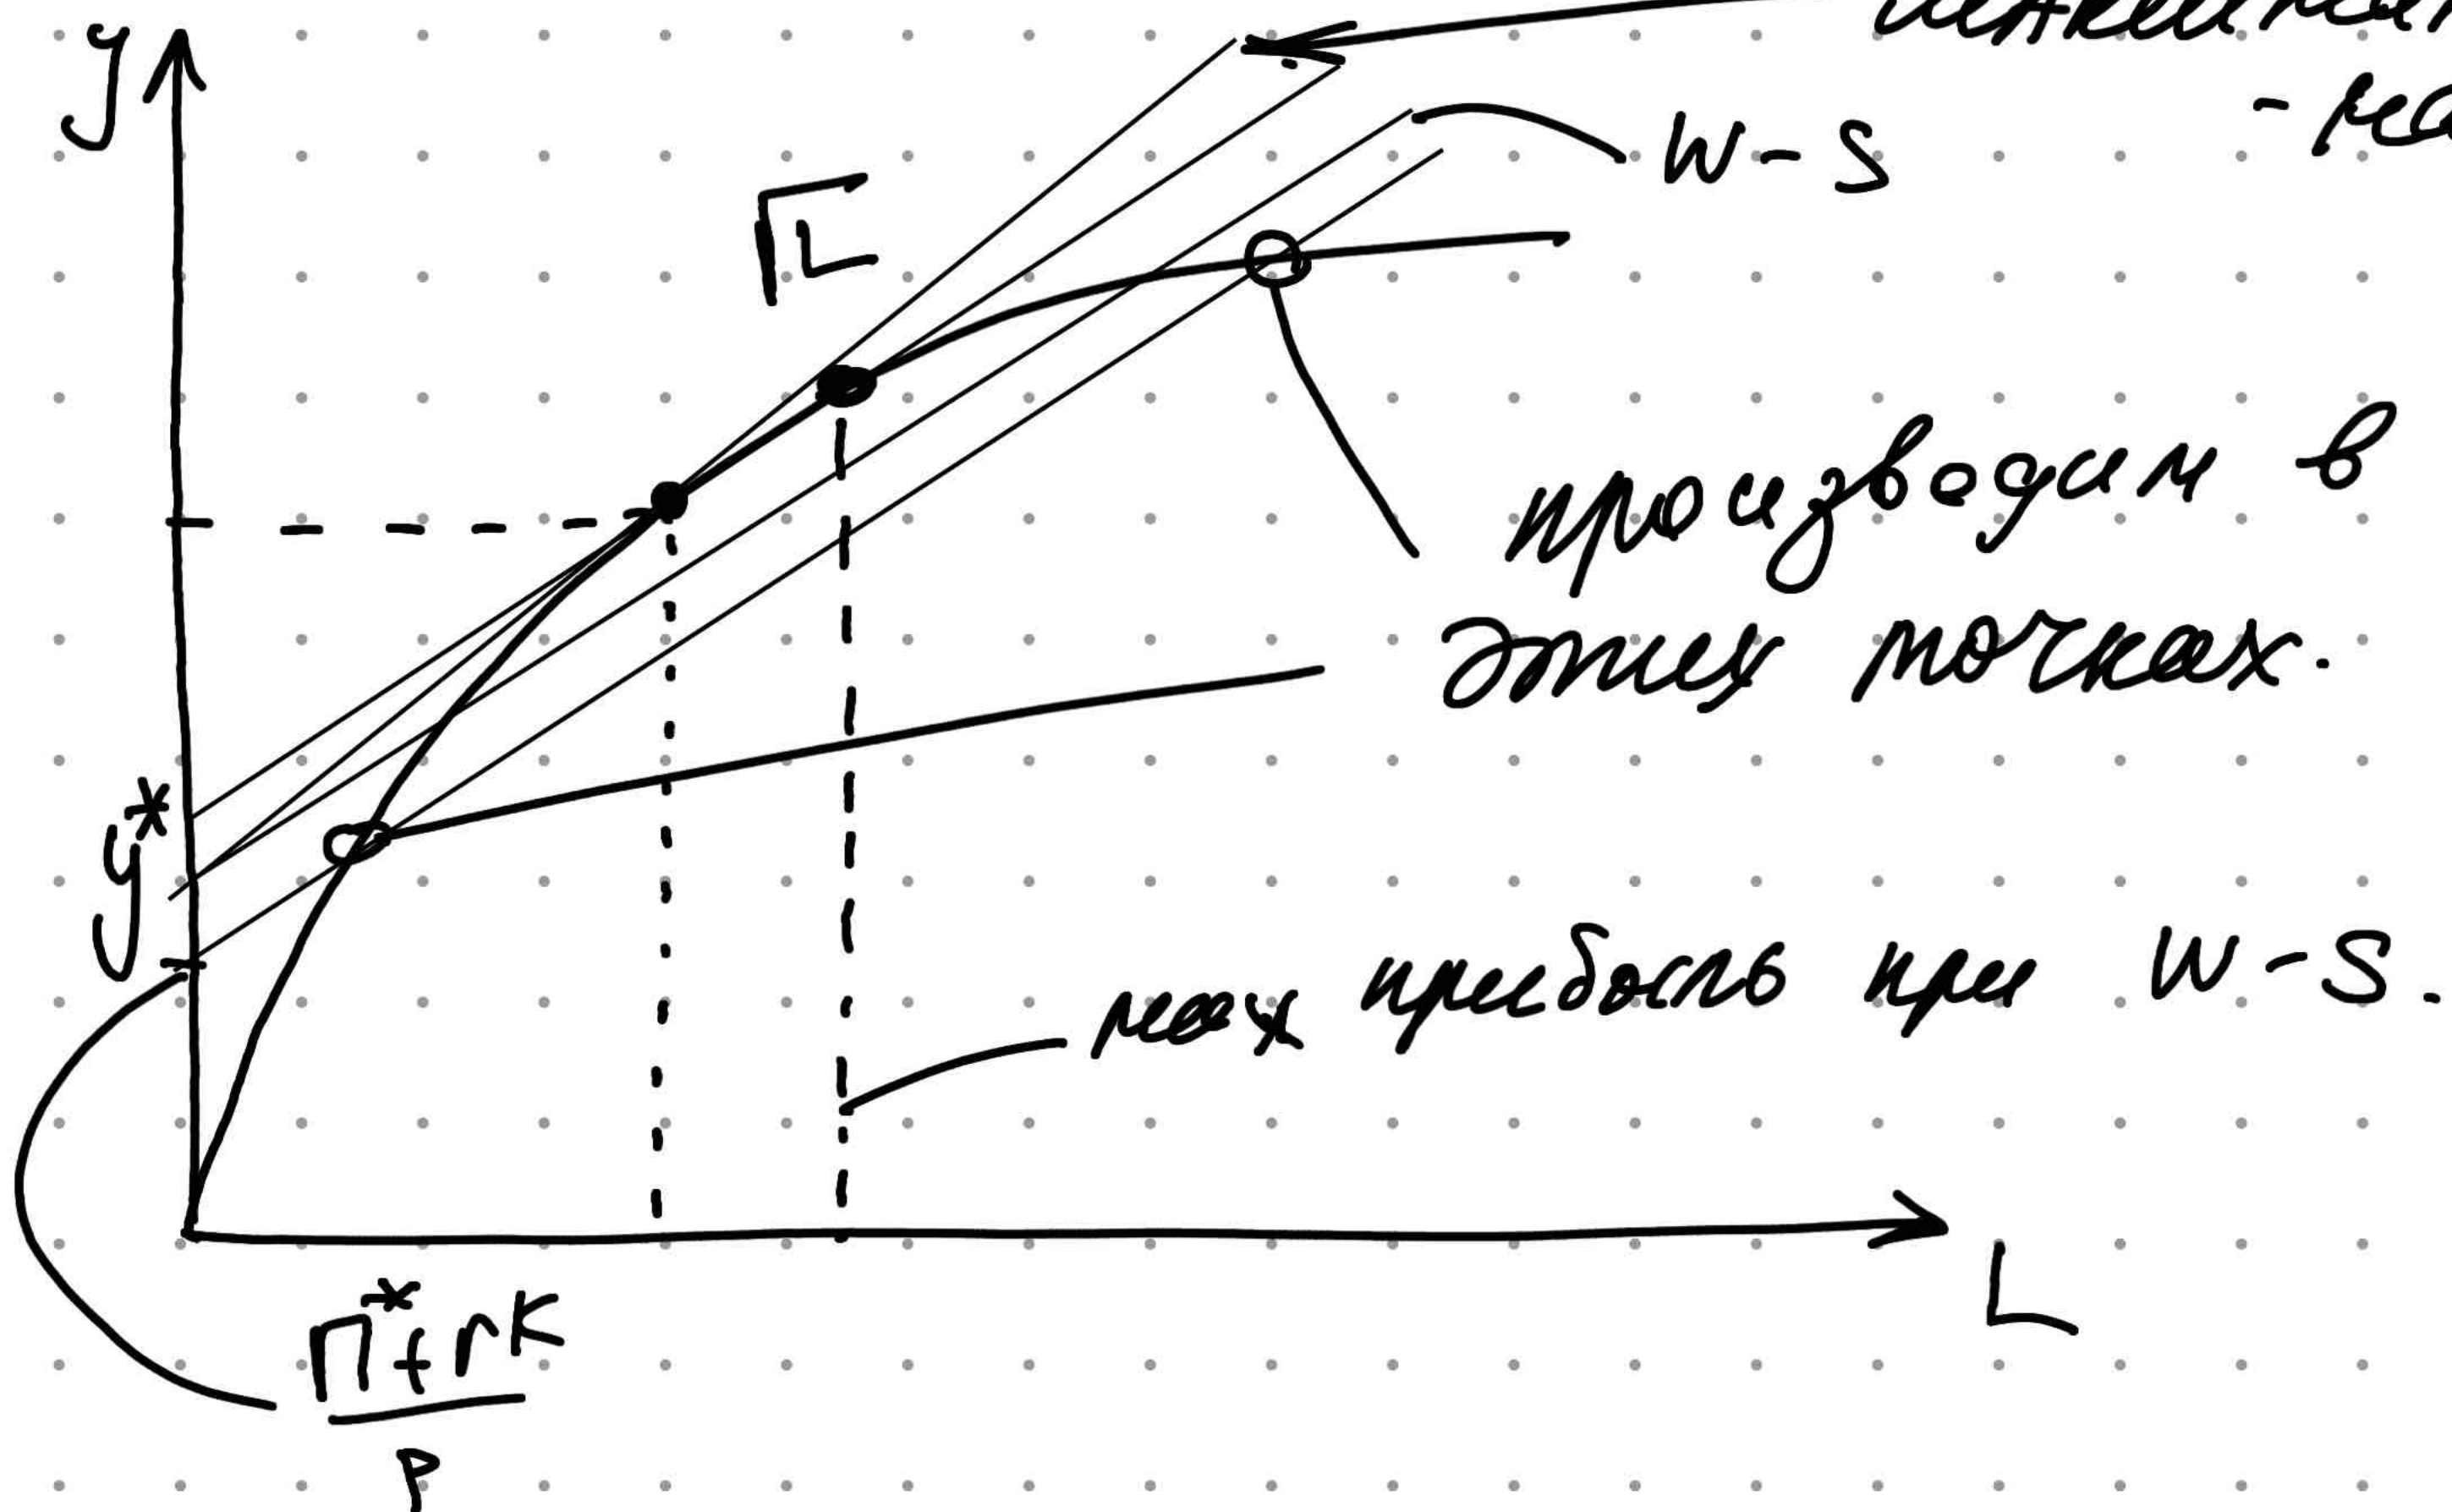 y
- max
W-S
√L
производим в
этих точках.
y*
max прибыль при W-S.
L
П*+rK
P